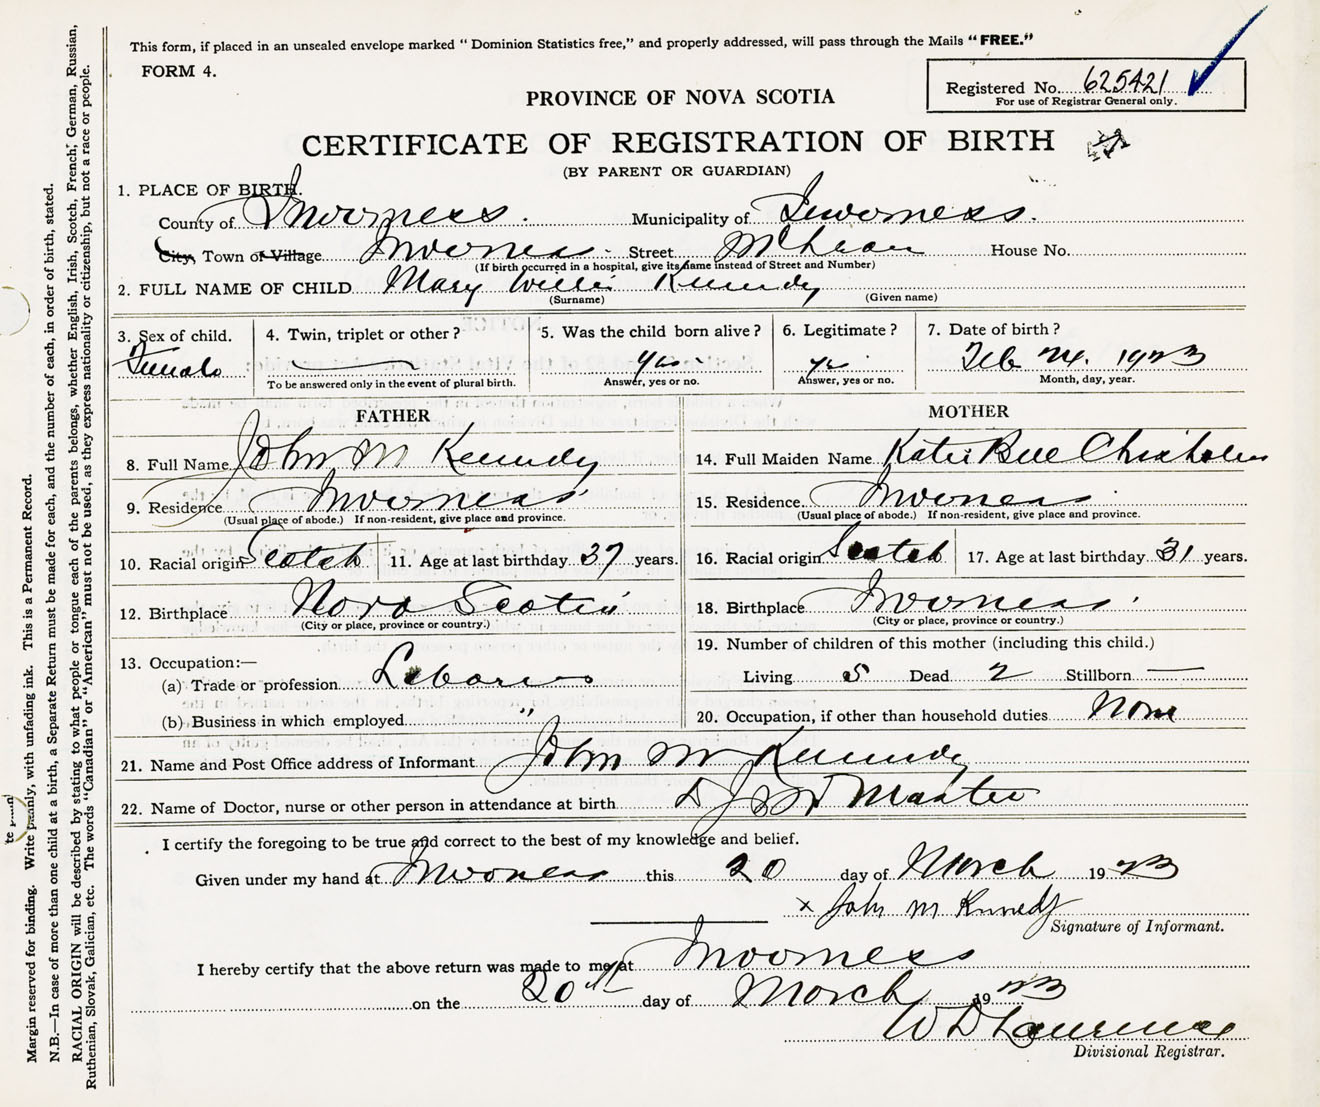 This form, if placed in an unsealed envelope marked “ Dominion Statistics free,” and properly addressed, will pass through the Mails “ FREE.”
FORM 4.
Registered No. 625421
For use of Registrar General only.
PROVINCE OF NOVA SCOTIA
CERTIFICATE OF REGISTRATION OF BIRTH
(BY PARENT OR GUARDIAN)
1. PLACE OF BIRTH.
County of Inverness. Municipality of Inverness.
City, Town or Village Inverness Street McLean House No.
(If birth occurred in a hospital, give its name instead of Street and Number)
2. FULL NAME OF CHILD Mary Kennedy
(Surname) (Given name)
3. Sex of child. 4. Twin, triplet or other ? 5. Was the child born alive ? 6. Legitimate ? 7. Date of birth ?
Female yes yes Feb 1923
To be answered only in the event of plural birth. Answer, yes or no. Answer, yes or no. Month, day, year.
FATHER MOTHER
8. Full Name John M Kennedy 14. Full Maiden Name Katie Chisholm
9. Residence Inverness 15. Residence Inverness
(Usual place of abode.) If non-resident, give place and province. (Usual place of abode.) If non-resident, give place and province.
10. Racial origin Scotch 11. Age at last birthday 37 years. 16. Racial origin Scotch 17. Age at last birthday 31 years.
12. Birthplace Nova Scotia 18. Birthplace Inverness
(City or place, province or country.) (City or place, province or country.)
19. Number of children of this mother (including this child.)
13. Occupation:—
(a) Trade or profession Laborer Living 5 Dead 2 Stillborn —
(b) Business in which employed " 20. Occupation, if other than household duties None
21. Name and Post Office address of Informant John M Kennedy
22. Name of Doctor, nurse or other person in attendance at birth
I certify the foregoing to be true and correct to the best of my knowledge and belief.
Given under my hand at Inverness this 20 day of March 1923
x John M Kennedy
Signature of Informant.
I hereby certify that the above return was made to me at Inverness
on the 20th day of March 1923
W D Lawrence
Divisional Registrar.
Margin reserved for binding. Write plainly, with unfading ink. This is a Permanent Record.
N.B.—In case of more than one child at a birth, a Separate Return must be made for each, and the number of each, in order of birth, stated.
RACIAL ORIGIN will be described by stating to what people or tongue each of the parents belongs, whether English, Irish, Scotch, French, German, Russian,
Ruthenian, Slovak, Galician, etc. The words “Canadian” or “American” must not be used, as they express nationality or citizenship, but not a race or people.